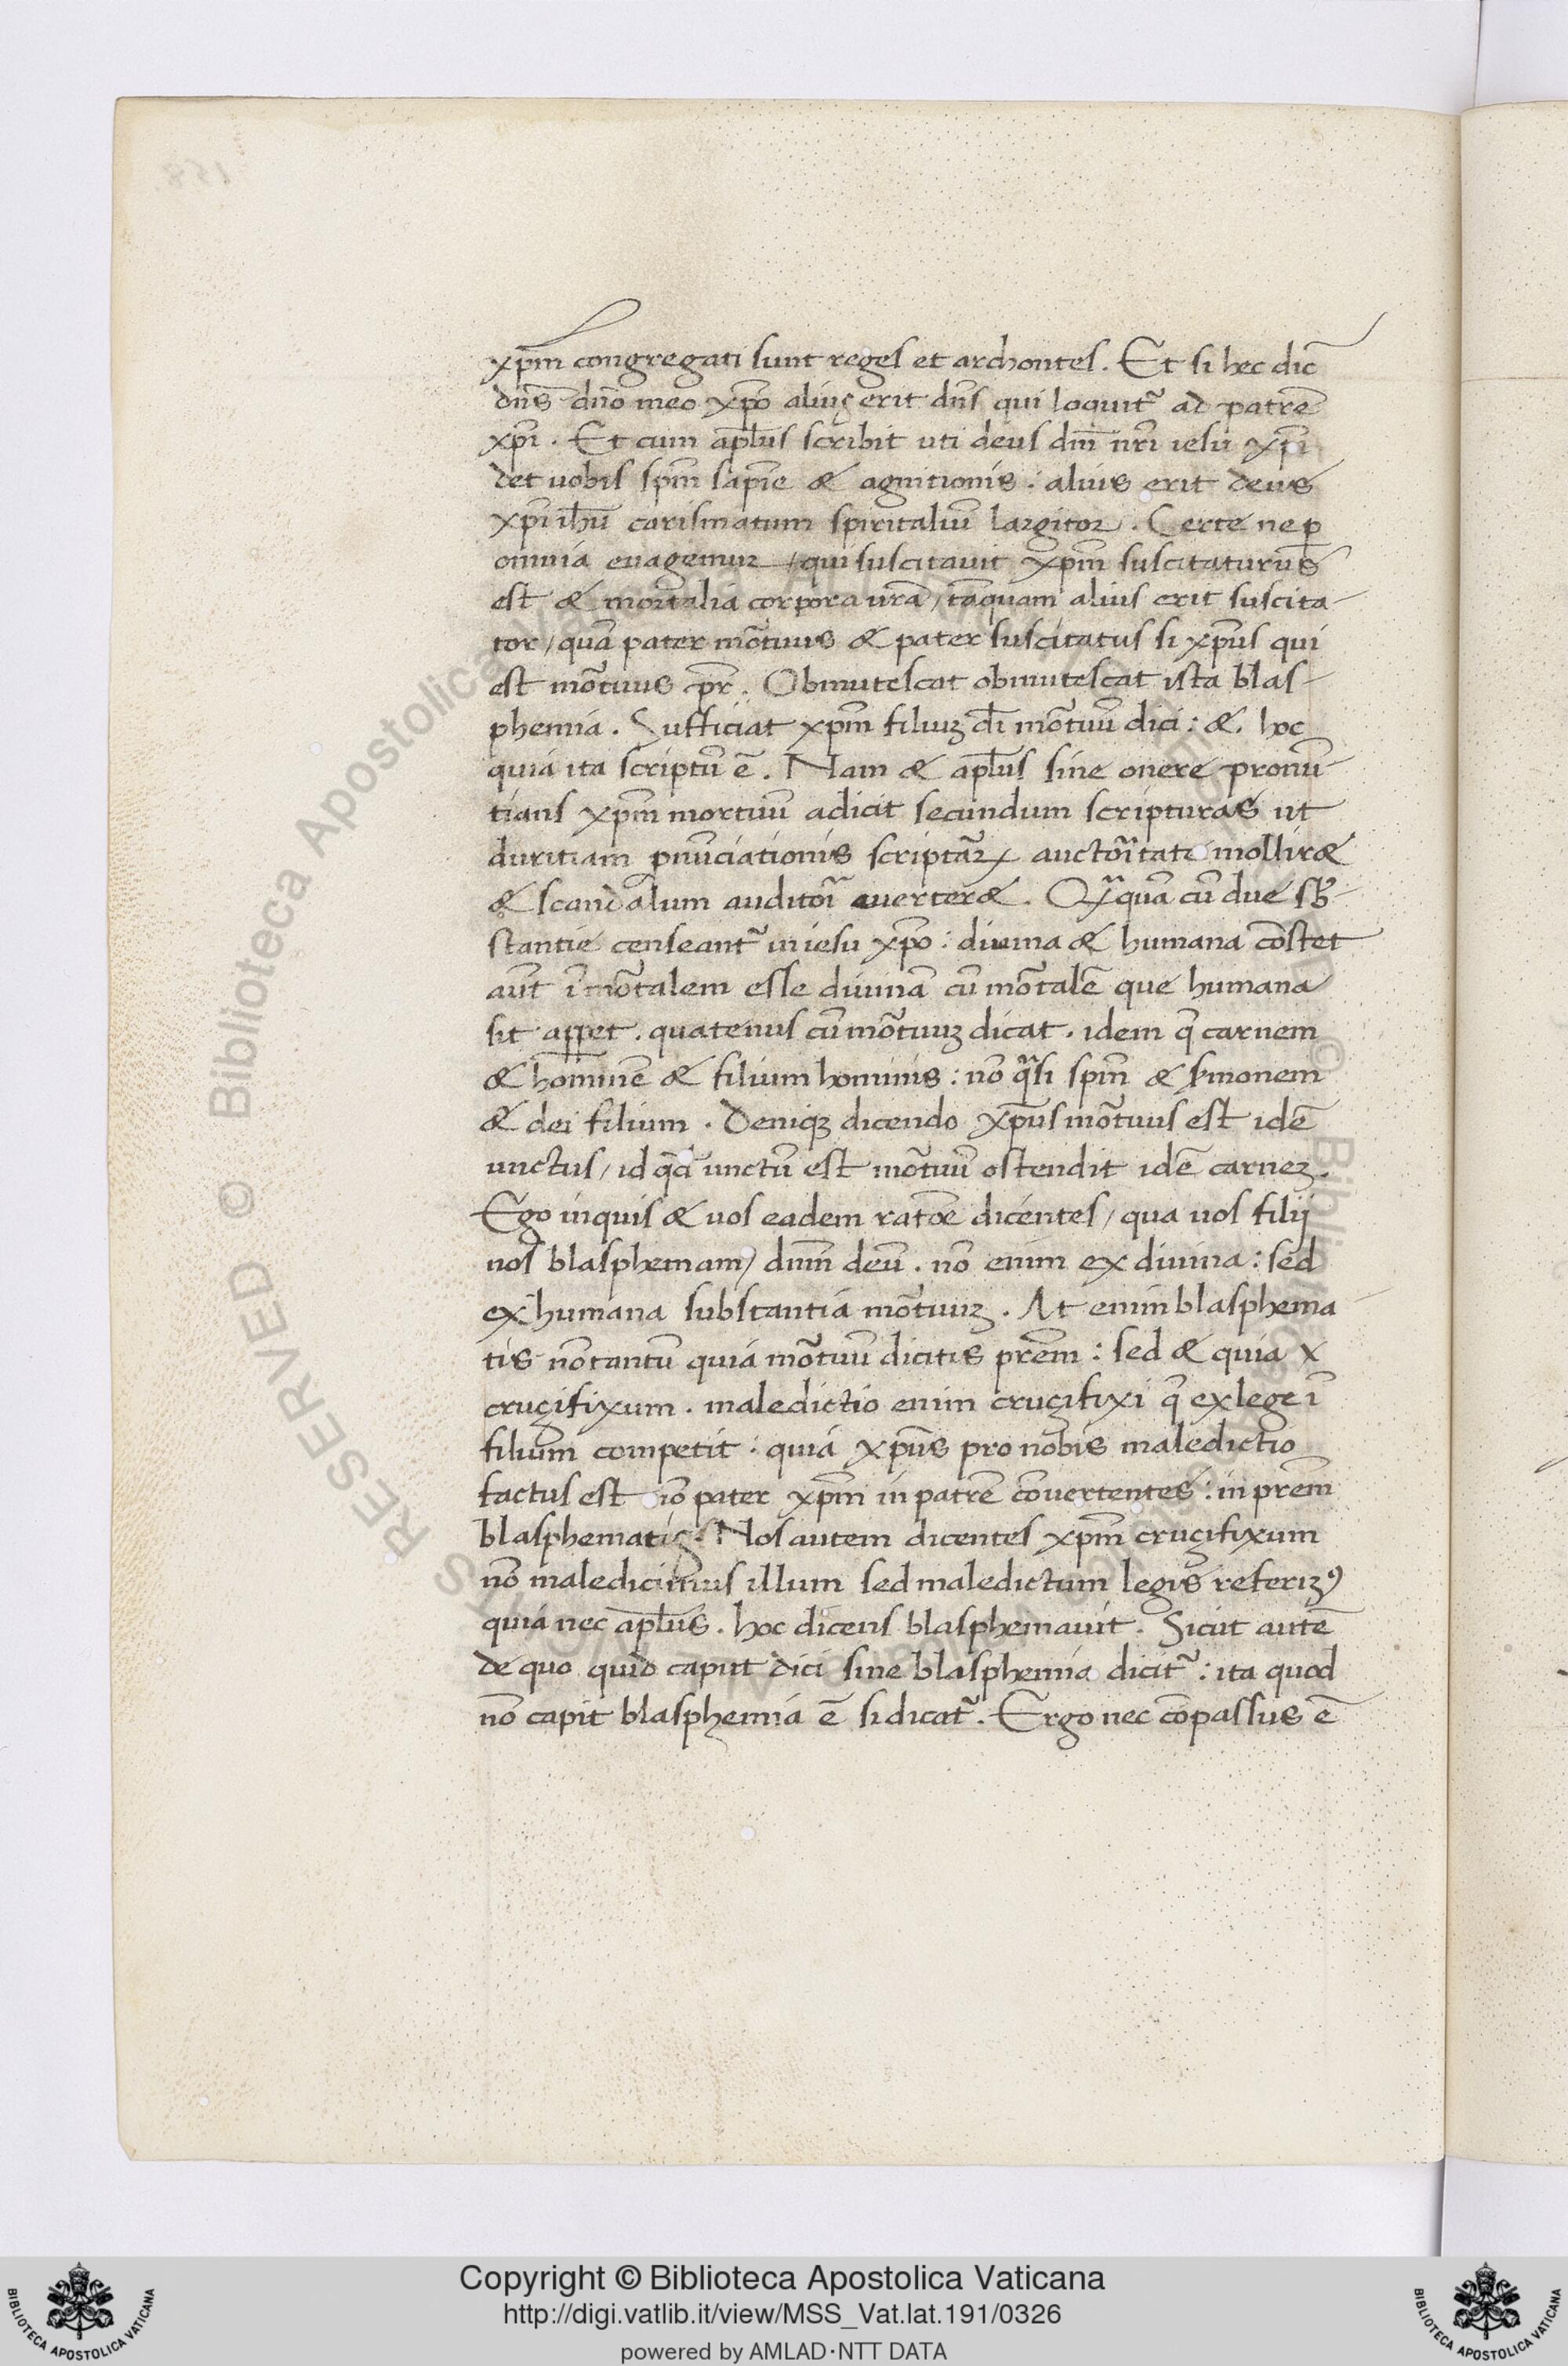 xp̄m congregati sunt reges et archontes. Et si hec dic̄
dn̄s dn̄o meo xp̄o alius erit dn̄s qui loquit᷑ ad patrē
xp̄i. Et cum apl̄us scribit uti deus dn̄i nr̄i iesu xp̄i
det uobis sp̄m sapīe & agnitionis: alius erit deus
xp̄i ih̄u carismatum spiritaliū largitor. Certe ne ꝑ
omnia euagemur / qui suscitauit xp̄m suscitaturus
est & mortalia corpora ur̄a / tāquam alius erit suscita-
tor / quā pater mōtuus & pater suscitatus si xp̄us qui
est mōtuus pr̄. Obmutescat obmutescat ista blas-
phemia. Sufficiat xp̄m filiuꝫ dī mōtuū dici: & hoc
quia ita scriptū ē. Nam & apl̄us sine onere pronū-
tians xp̄m mortuū adicit secundum scripturas ut
duritiam pnūciationis scriptāꝝ auctōitate mollir&
& scandalum auditōi auerter&. Qᷓquā cū due sƀ-
stantie censeant᷑ in iesu xp̄o: diuina & humana cōstet
aūt īmōtalem esse diuinā cū mōtalē que humana
sit appet. quatenus cū mōtuuꝫ dicat. idem q̄ carnem
& hominē & filium hominis: nō qᷓsi sp̄m & s̄monem
& dei filium. Deniqꝫ dicendo xp̄us mōtuus est idē
unctus / id qd̄ unctū est mōtuū ostendit idē carneꝫ.
Ego inquis & uos eadem ratōe dicentes / qua uos filij
nos blasphemam / dnm̄ deū. nō enim ex diuina: sed
ex humana substantia mōtuuꝫ. At enim blasphema
tis nōtantū quia mōtuū dicitis pr̄em: sed & quia x
crucifixum. maledictio enim crucifixi q̄ ex lege ī
filium competit: quia xp̄us pro nobis maledictio
factus est nō pater xp̄m in patrē cōuertentes: in pr̄em
blasphematis. Nos autem dicentes xp̄m crucifixum
nō maledicimus illum sed maledictum legis referiꝫꝰ
quia nec apl̄us. hoc dicens blasphemauit. Sicut autē
de quo quid capit dici sine blasphemia dicit᷑: ita quod
nō capit blasphemia ē si dicat᷑. Ergo nec cōpassus ē
Copyright © Biblioteca Apostolica Vaticana
http://digi.vatlib.it/view/MSS_Vat.lat.191/0326
powered by AMLAD·NTT DATA